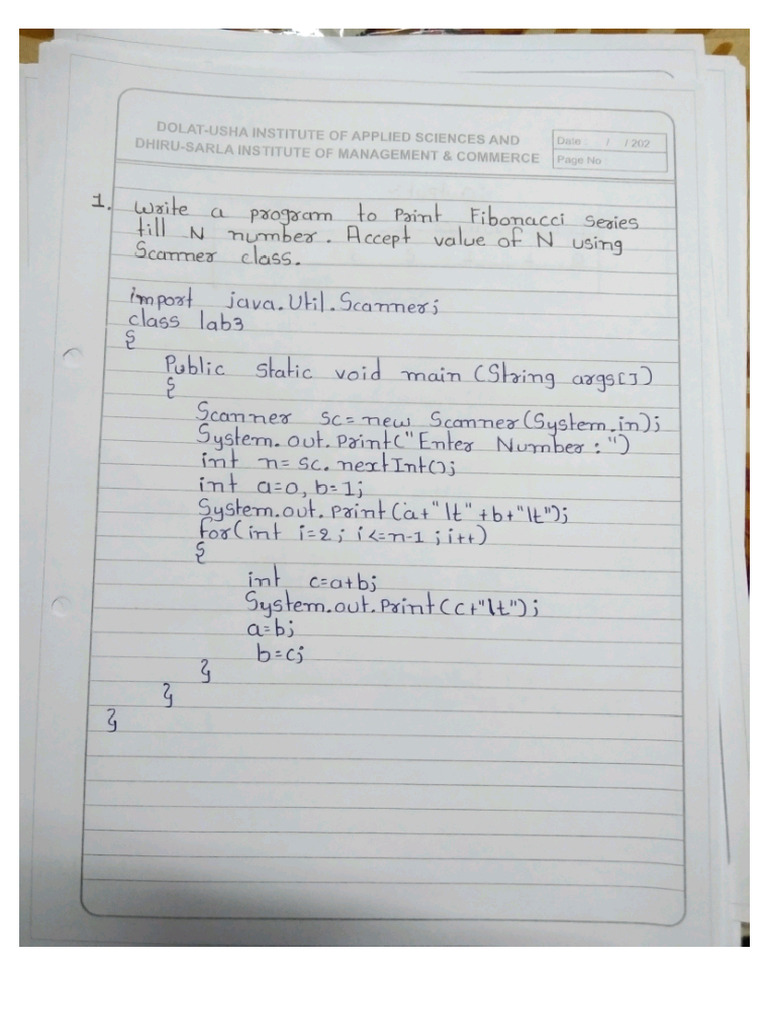 DOLAT-USHA INSTITUTE OF APPLIED SCIENCES AND
DHIRU-SARLA INSTITUTE OF MANAGEMENT & COMMERCE
Date : / / 202
Page No
1. Write a program to Print Fibonacci series
till N number. Accept value of N using
Scanner class.
import java.Util.Scanner;
class lab3
{
Public static void main (String args[])
{
Scanner sc=new Scanner(System.in);
System.out.Print("Enter Number:")
int n= sc.nextInt();
int a=0, b=1;
System.out.Print(a+"\t"+b+"\t");
for(int i=2; i<=n-1; i++)
{
int c=a+b;
System.out.Print(c+"\t");
a=b;
b=c;
}
}
}